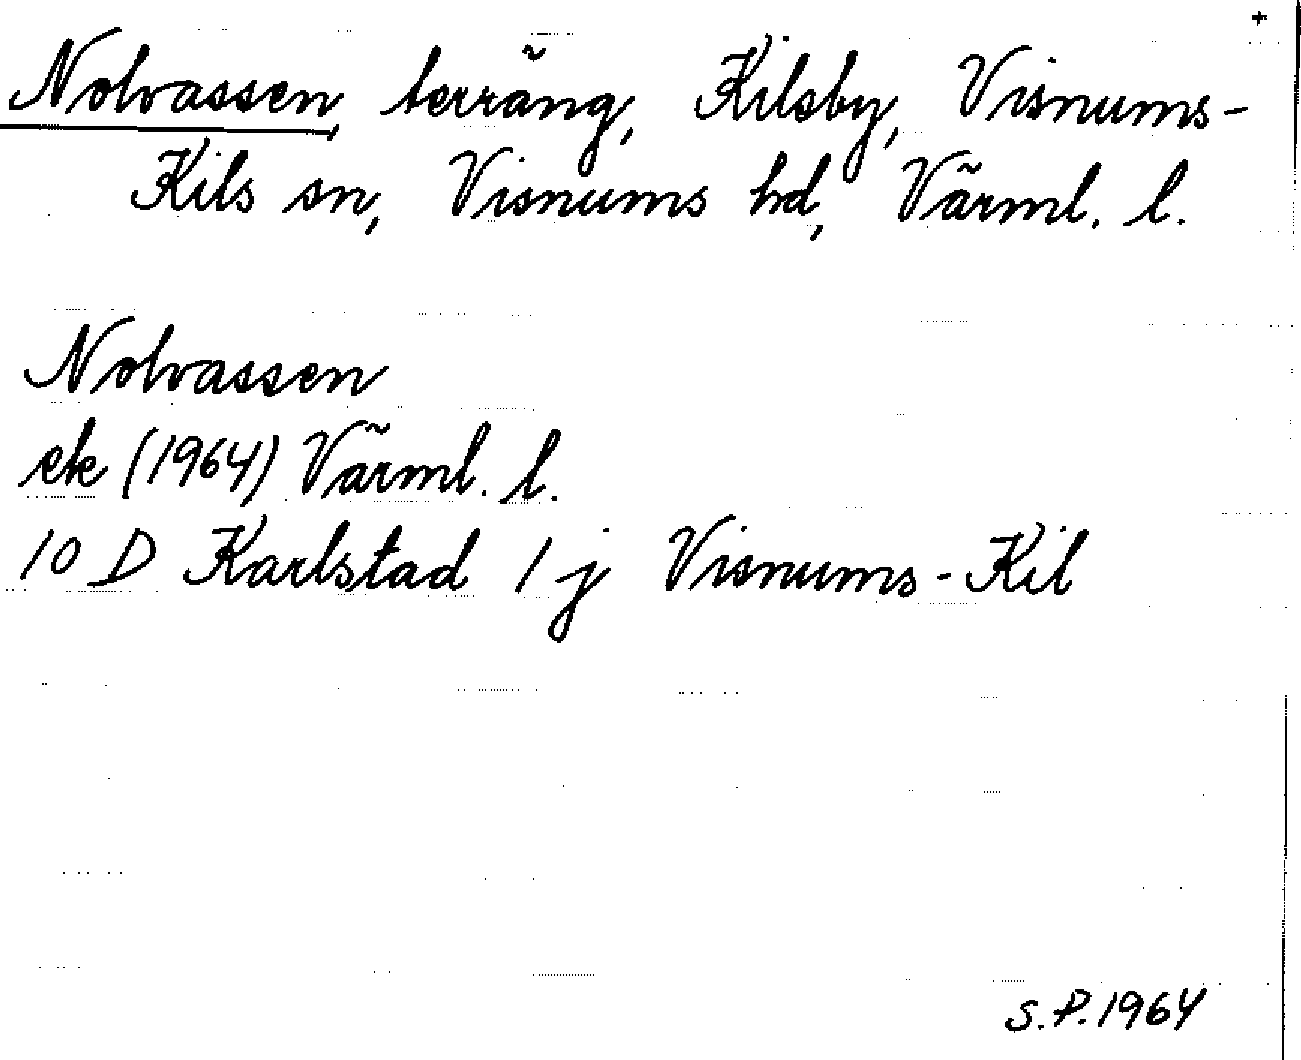 +
Nolvassen, terräng, Kilsby, Visnums-
Kils sn, Visnums hd, Värml. l.
Nolvassen
ek (1964) Värml. l.
10 D Karlstad 1 j Visnums-Kil
S.P. 1964